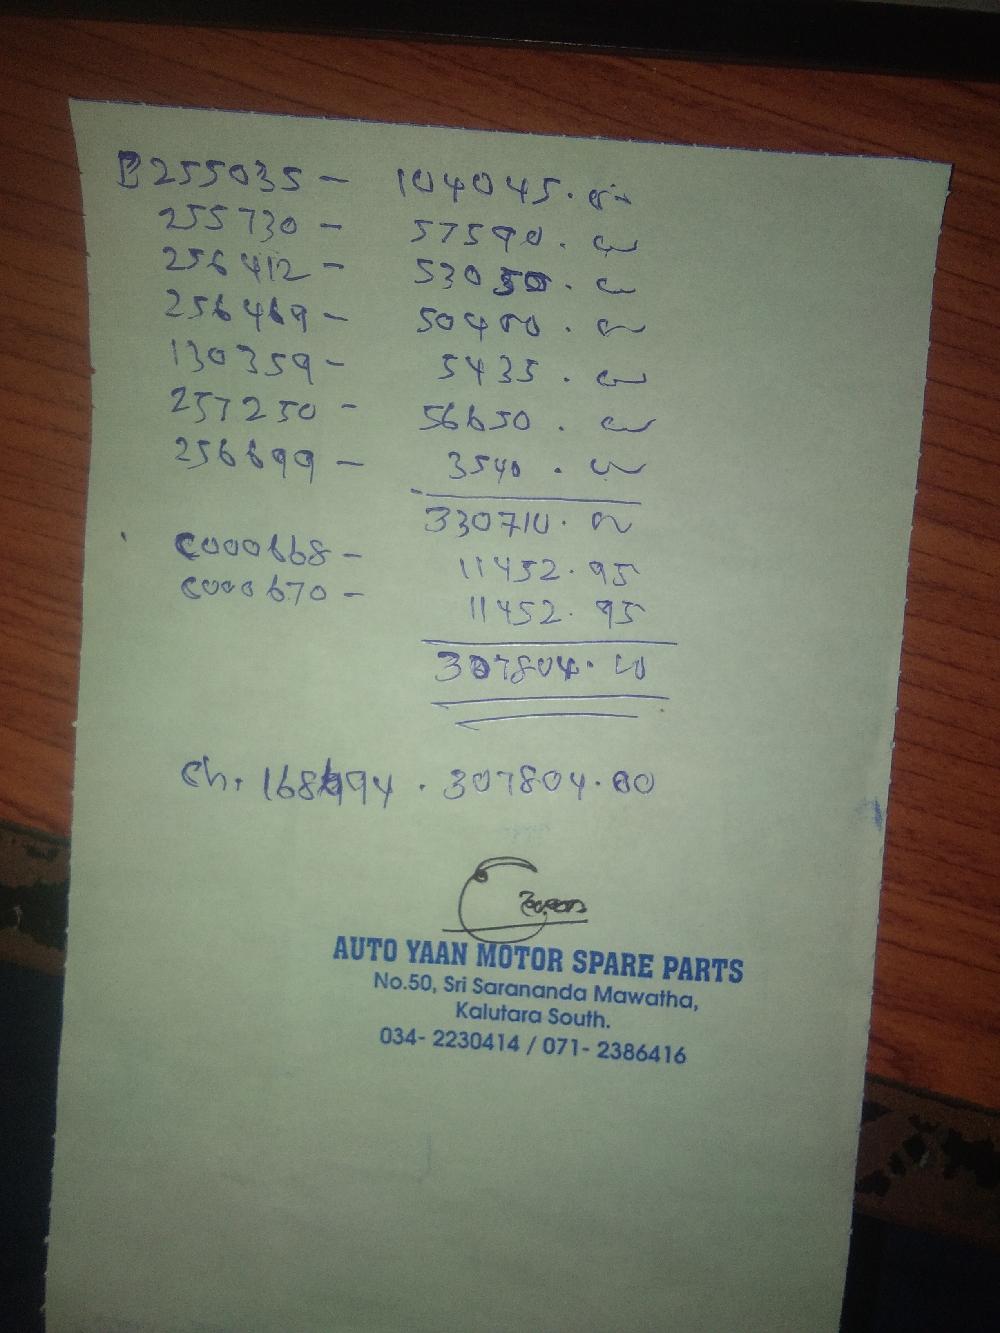 B255035 - 104045.00
255730 - 57590.00
256412 - 53050.00
256469 - 50400.00
130359 - 5435.00
257250 - 56650.00
256699 - 3540.00
330710.00
C000668 - 11452.95
C000670 - 11452.95
307804.10
Ch. 168494 . 307804.00
AUTO YAAN MOTOR SPARE PARTS
No.50, Sri Sarananda Mawatha,
Kalutara South.
034- 2230414 / 071- 2386416